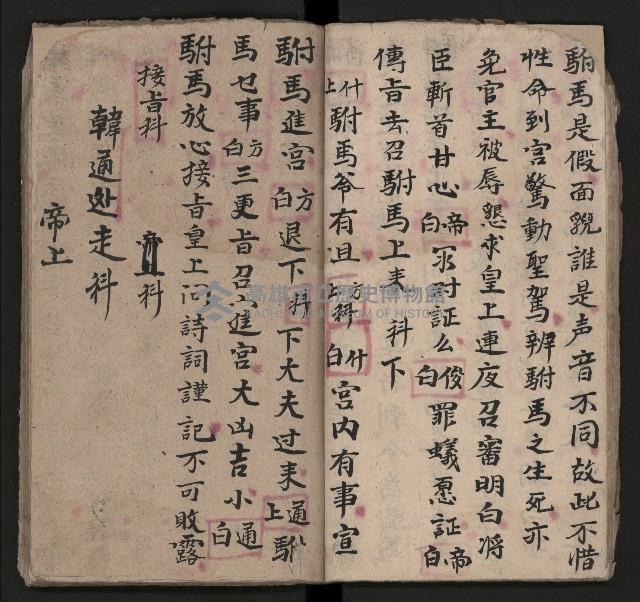 駙馬是假面貌誰是声音不同故此不惜
性命到宮驚動聖駕辨駙馬之生死亦
免官主被辱懇求皇上連夜召審明白将
臣斬首甘心帝白 対証么俊白罪蟻愿証帝白
傳旨去召駙馬上奏科下
什上駙馬爷有 方科什白宮内有事宣
駙馬進宮方白退下科下大夫过来通上駙
馬乜事方白三更旨召進宮大凶吉小通白
駙馬放心接旨皇上问詩詞謹記不可敗露
接旨科 科
韓通处走科
帝上
高雄市立歷史博物館
KAOHSIUNG MUSEUM OF HISTORY